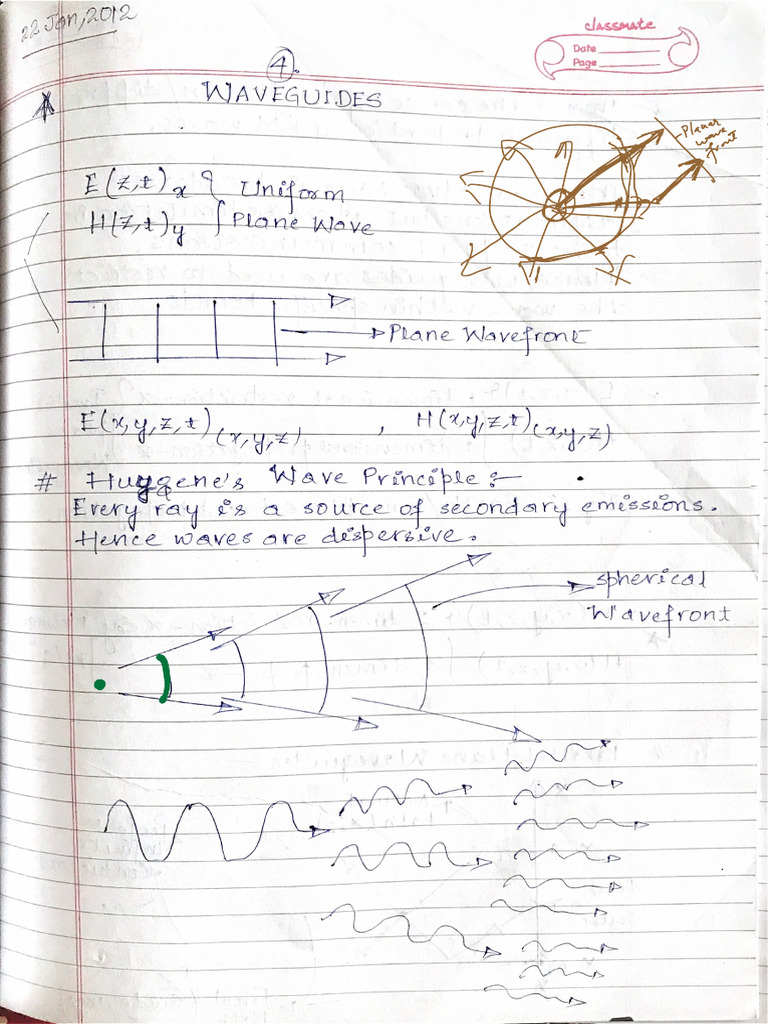 22 Jan, 2012
classmate
Date
Page
4.
WAVEGUIDES
Planer
wave
front
E(z,t)x } Uniform
H(z,t)y } Plane Wave
Plane Wavefront
E(x,y,z,t)(x,y,z) , H(x,y,z,t)(x,y,z)
# Huygene's Wave Principle :-
Every ray is a source of secondary emissions.
Hence waves are dispersive.
spherical
Wavefront